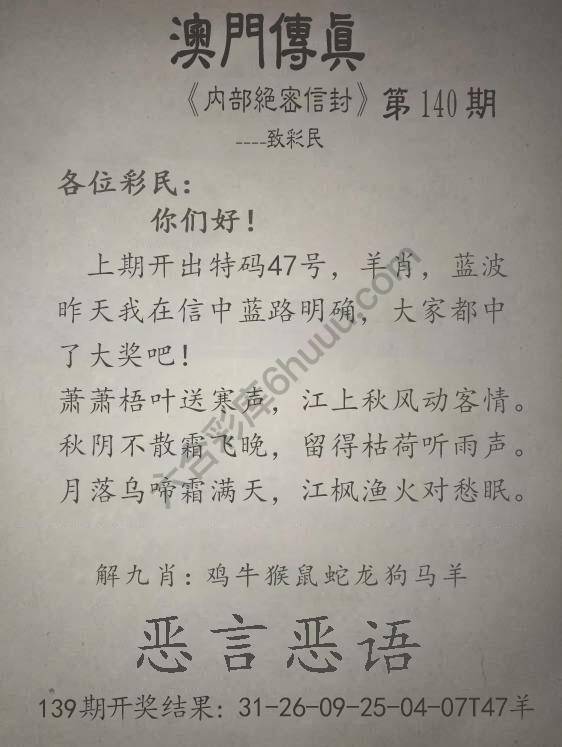 澳門傳眞
《内部絕密信封》第140期
----致彩民
各位彩民：
你们好！
上期开出特码47号，羊肖，蓝波
昨天我在信中蓝路明确，大家都中
了大奖吧！
萧萧梧叶送寒声，江上秋风动客情。
秋阴不散霜飞晚，留得枯荷听雨声。
月落乌啼霜满天，江枫渔火对愁眠。
六合彩库6huuu.com
解九肖：鸡牛猴鼠蛇龙狗马羊
恶言恶语
139期开奖结果：31-26-09-25-04-07T47羊